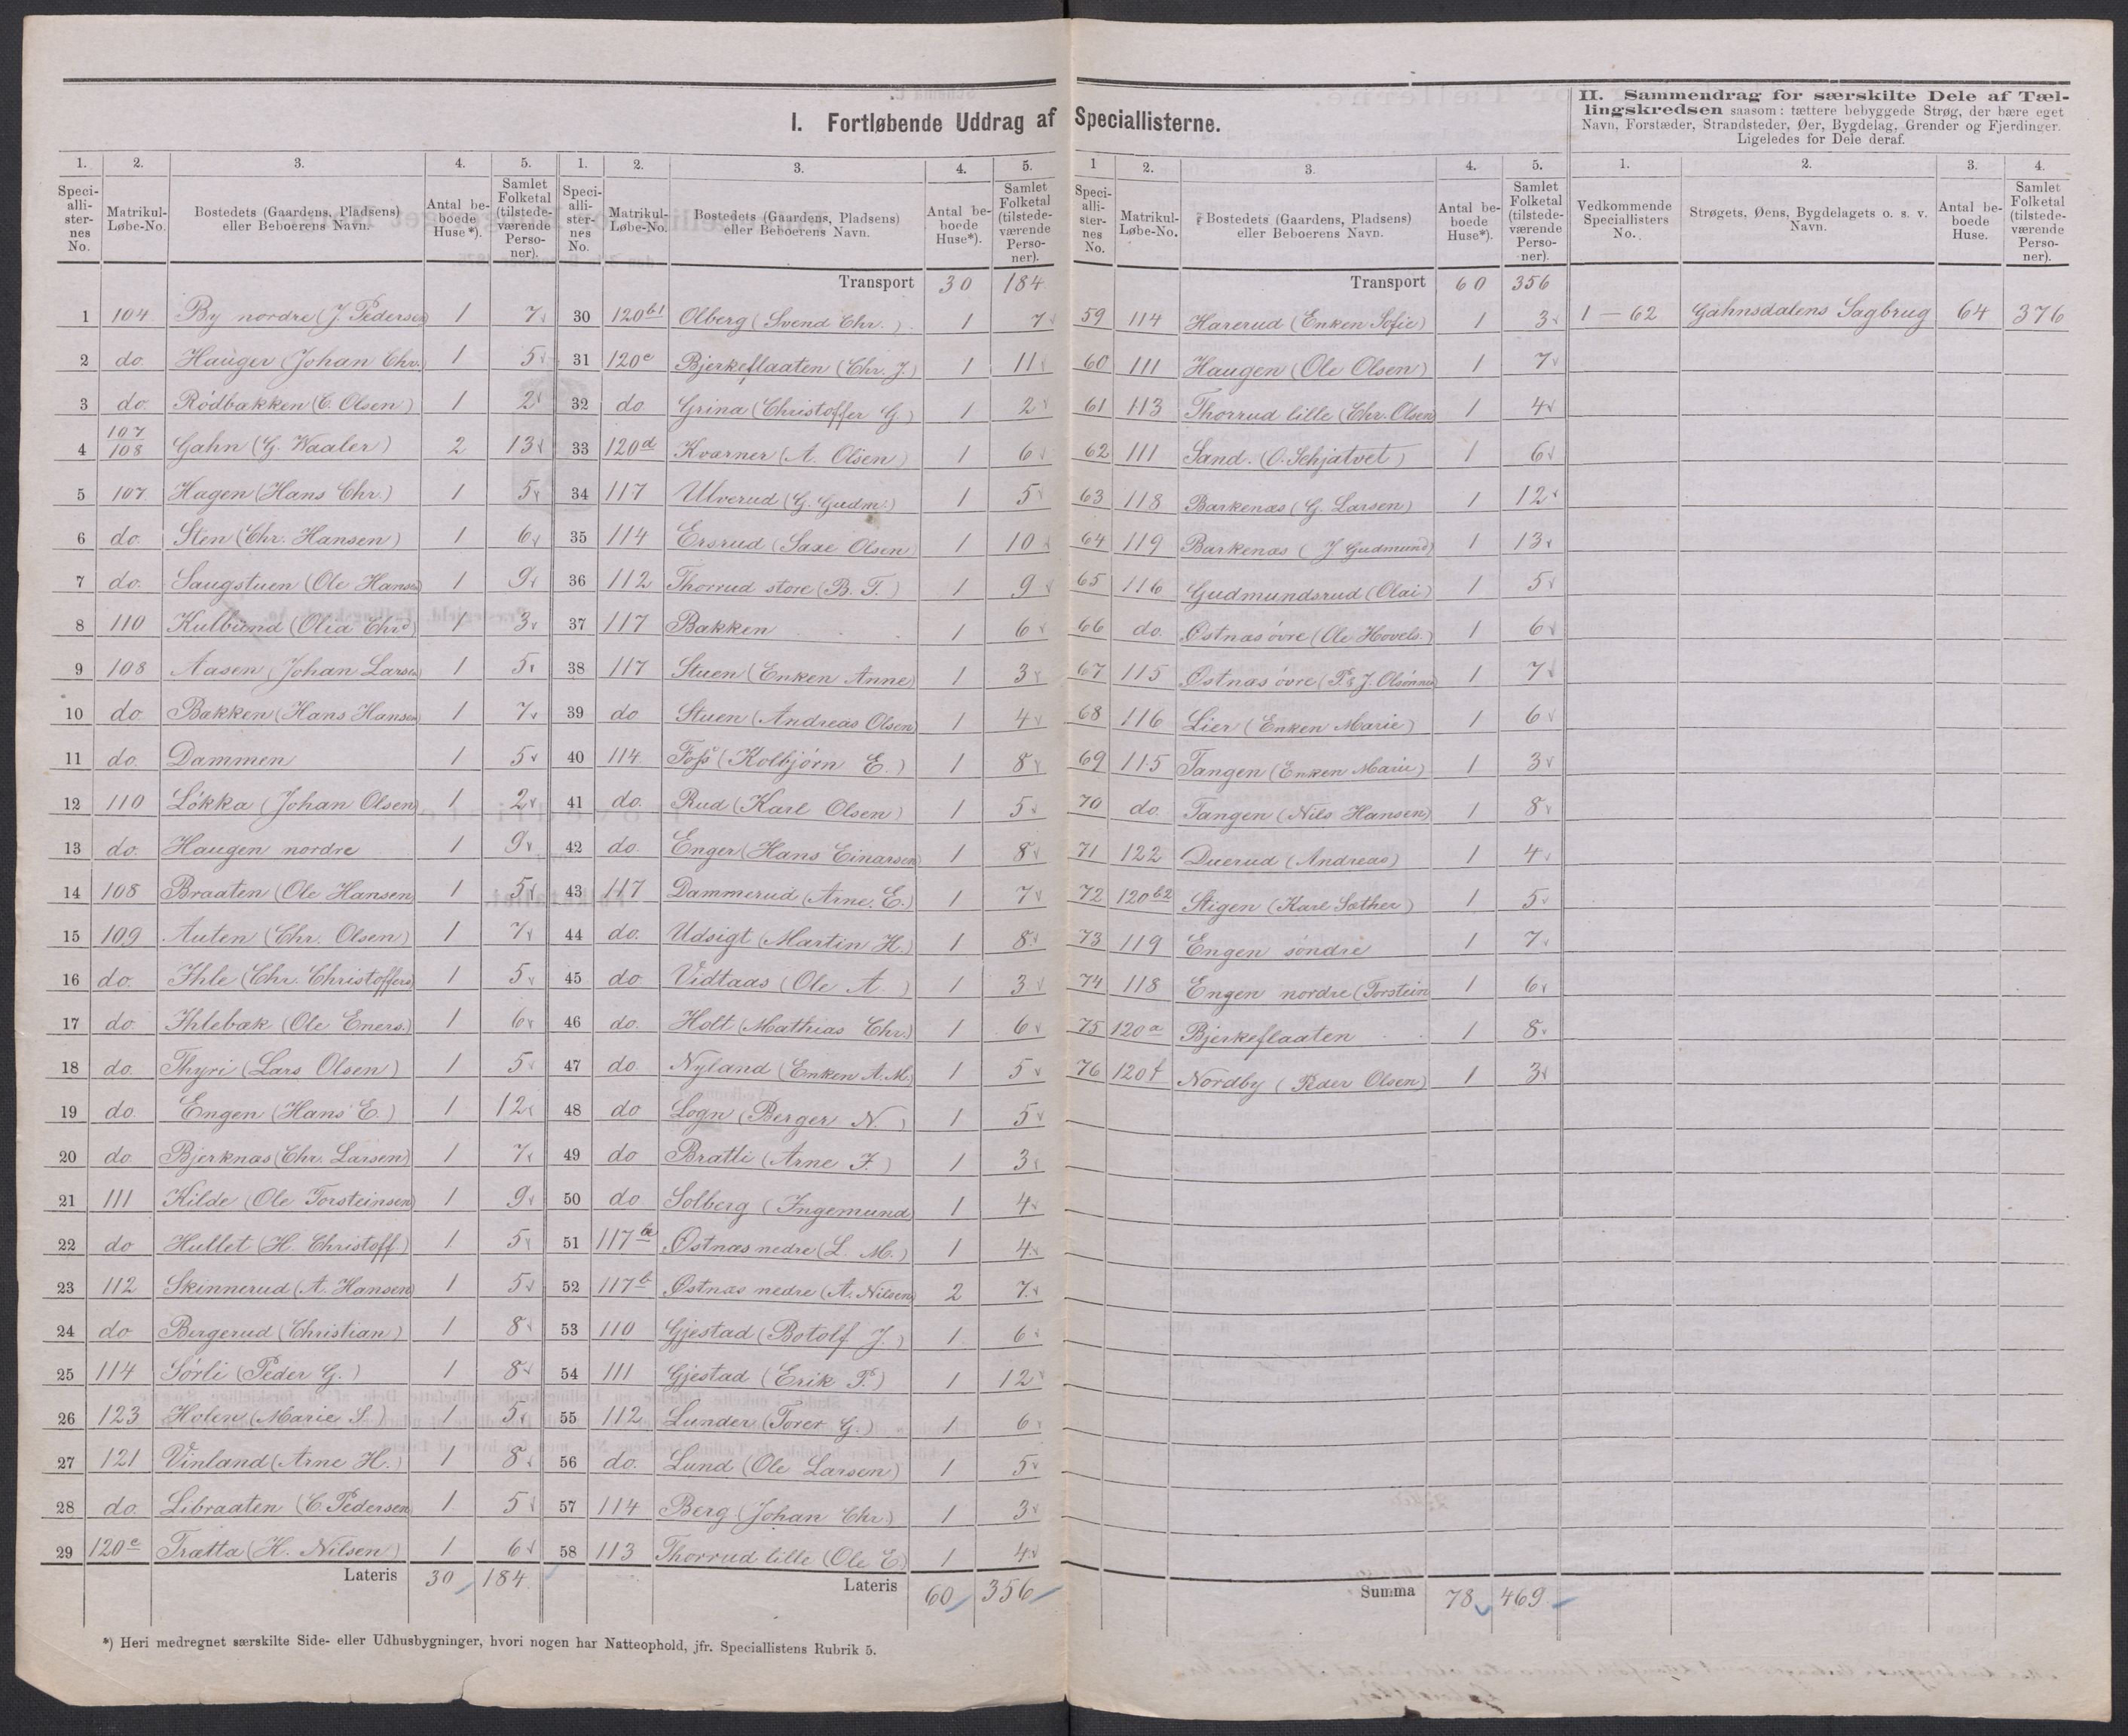 I. Fortløbende Uddrag af Speciallisterne.
II. Sammendrag for særskilte Dele af Tællingskredsen saasom: tættere bebyggede Strøg, der bære eget
Navn, Forstæder, Strandsteder, Øer, Bygdelag, Grender og Fjerdinger.
Ligeledes for Dele deraf.
1. 2. 3. 4. 5.
Speciallisternes No. Matrikul-Løbe-No. Bostedets (Gaardens, Pladsens) eller Beboerens Navn. Antal beboede Huse*). Samlet Folketal (tilstedeværende Personer).
1 104 By nordre (J. Pedersen 1 7
2 do. Hauger (Johan Chr.) 1 5
3 do. Rødbakken (C. Olsen) 1 2
4 107/108 Gahn (G. Waaler) 2 13
5 107 Hagen (Hans Chr.) 1 5
6 do. Sten (Chr. Hansen) 1 6
7 do. Saugstuen (Ole Hansen) 1 9
8 110 Kulbund (Olia Chrd) 1 3
9 108 Aasen (Johan Larsen) 1 5
10 do Bakken (Hans Hansen) 1 7
11 do. Dammen 1 5
12 110 Løkka (Johan Olsen) 1 2
13 do. Haugen nordre 1 9
14 108 Braaten (Ole Hansen 1 5
15 109 Auten (Chr. Olsen) 1 7
16 do. Ihle (Chr. Christoffers) 1 5
17 do. Ihlebæk (Ole Eners.) 1 6
18 do. Thyri (Lars Olsen) 1 5
19 do. Engen (Hans E.) 1 12
20 do Bjerknæs (Chr. Larsen) 1 7
21 111 Kilde (Ole Torsteinsen) 1 9
22 do Hullet (H. Christoff.) 1 5
23 112 Skinnerud (A. Hansen) 1 5
24 do Bergerud (Christian) 1 8
25 114 Sørli (Peder G.) 1 8
26 123 Holen (Marie S.) 1 5
27 121 Vinland (Arne H.) 1 8
28 do. Libraaten (C. Pedersen 1 5
29 120e Trætta (H. Nilsen) 1 6
Lateris 30 184
1. 2. 3. 4. 5.
Speciallisternes No. Matrikul-Løbe-No. Bostedets (Gaardens, Pladsens) eller Beboerens Navn. Antal beboede Huse*). Samlet Folketal (tilstedeværende Personer).
Transport 30 184
30 120b1 Olberg (Svend Chr.) 1 7
31 120c Bjerkeflaaten (Chr. J.) 1 11
32 do Grina (Christoffer G.) 1 2
33 120d Kværner (A. Olsen) 1 6
34 117 Ulverud (G. Gudm.) 1 5
35 114 Ersrud (Saxe Olsen) 1 10
36 112 Thorrud store (B. T.) 1 9
37 117 Bakken 1 6
38 117 Stuen (Enken Anne) 1 3
39 do Stuen (Andreas Olsen) 1 4
40 114 Foss (Kolbjørn E.) 1 8
41 do. Rud (Karl Olsen) 1 5
42 do. Enger (Hans Einarsen) 1 8
43 117 Dammerud (Arne. E.) 1 7
44 do. Udsigt (Martin H.) 1 8
45 do Vidtaas (Ole A.) 1 3
46 do. Holt (Mathias Chr.) 1 6
47 do Nyland (Enken A.M.) 1 5
48 do Logn (Berger N.) 1 5
49 do Bratli (Arne J.) 1 3
50 do Solberg (Ingemund) 1 4
51 117a Østnæs nedre (L. M.) 1 4
52 117b Østnæs nedre (A. Nilsen) 2 7
53 110 Gjestad (Botolf J.) 1 6
54 111 Gjestad (Erik P.) 1 12
55 112 Lunder (Torer G.) 1 6
56 do. Lund (Ole Larsen) 1 5
57 114 Berg (Johan Chr) 1 3
58 113 Thorrud lille (Ole E) 1 4
Lateris 60 356
1 2. 3. 4. 5.
Speciallisternes No. Matrikul-Løbe-No. Bostedets (Gaardens, Pladsens) eller Beboerens Navn. Antal beboede Huse*). Samlet Folketal (tilstedeværende Personer).
Transport 60 356
59 114 Harerud (Enken Sofie) 1 3
60 111 Haugen (Ole Olsen) 1 7
61 113 Thorrud lille (Chr. Olsen) 1 4
62 111 Sand. (O. Schjatvet) 1 6
63 118 Barkenæs (G. Larsen) 1 12
64 119 Barkenæs (J Gudmund) 1 13
65 116 Gudmundsrud (Olai) 1 5
66 do. Østnæs øvre (Ole Hovels.) 1 6
67 115 Østnæs øvre (P. & J. Olsønner) 1 7
68 116 Lier (Enken Marie) 1 6
69 115 Tangen (Enken Marie) 1 3
70 do Tangen (Nils Hansen) 1 8
71 122 Duerud (Andreas) 1 4
72 120b2 Stigen (Karl Sæther) 1 5
73 119 Engen søndre 1 7
74 118 Engen nordre (Torstein 1 6
75 120a Bjerkeflaaten 1 8
76 120f Nordby (Peder Olsen) 1 3
Summa 78 469
1. 2. 3. 4.
Vedkommende Speciallisters No. Strøgets, Øens, Bygdelagets o. s. v. Navn. Antal beboede Huse. Samlet Folketal (tilstedeværende Personer).
1 – 62 Gahnsdalens Sagbrug 64 376
*) Heri medregnet særskilte Side- eller Udhusbygninger, hvori nogen har Natteophold, jfr. Speciallistens Rubrik 5.